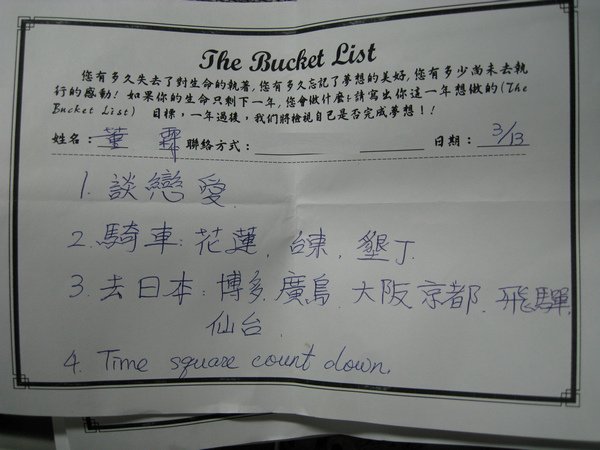 The Bucket List
您有多久失去了對生命的執著,您有多久忘記了夢想的美好,您有多少尚未去執
行的感動! 如果你的生命只剩下一年,您會做什麼?請寫出你這一年想做的(The
Bucket List) 目標,一年過後,我們將檢視自己是否完成夢想!!
姓名: 董霖 聯絡方式: 日期: 3/13
1. 談戀愛.
2. 騎車: 花蓮, 台東, 墾丁.
3. 去日本: 博多, 廣島, 大阪, 京都, 飛驒,
仙台.
4. Time square count down.